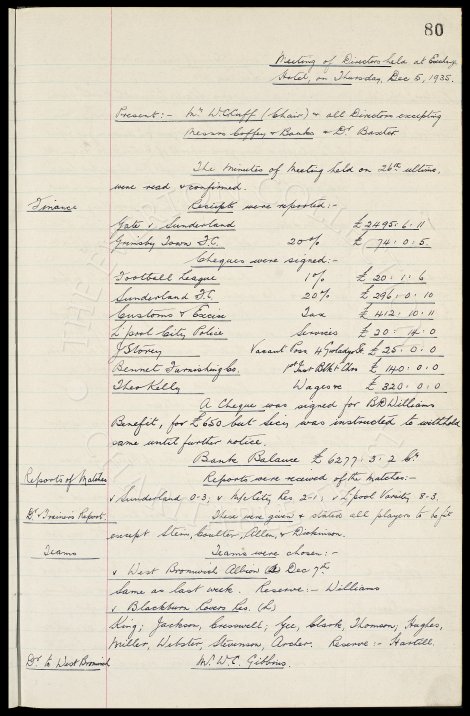 80
Meeting of Directors held at Exchge
Hotel, on Thursday, Dec 5, 1935.
Present:- Mr W.C. Cuff (Chair) & all Directors excepting
Messrs Coffey & Banks & Dr Baxter
The Minutes of Meeting held on 26th ultimo,
were read & confirmed.
Finance
Receipts were reported:-
Gate v. Sunderland £2495:6:11
Grimsby Town F.C. 20% £ 74:0:5
Cheques were signed:-
Football League 1% £ 20:1:6
Sunderland F.C. 20% £ 296:0:10
Customs & Excise Tax £ 412:10:11
L'pool City Police Services £ 20:14:0
J Storey Vacant Poss 4 Gwladys St. £ 25:0:0
Bennet Furnishing Co. 1st Inst Blk Chrs £ 140:0:0
Theo Kelly Wages &c £ 320:0:0
A Cheque was signed for B D Williams
Benefit, for £650 but Secy was instructed to withhold
same until further notice.
Bank Balance £ 6277:3:2
Reports of Matches
Reports were received of the matches:-
v Sunderland 0-3, v M/c City Res 2-1, v L'pool Varsity 8-3.
Dr & Trainers Report.
These were given & stated all players to be fit
except Stein, Coulter, Allen, & Dickinson.
Teams
Teams were chosen:-
v West Bromwich Albion Dec 7th
Same as last week. Reserve:- Williams
v Blackburn Rovers Res. (h)
King; Jackson, Cresswell; Gee, Clark, Thomson; Hughes,
Miller, Webster, Stevenson, Archer. Reserve:- Hartill.
Dr to West Bromwich
Mr W.C. Gibbins.